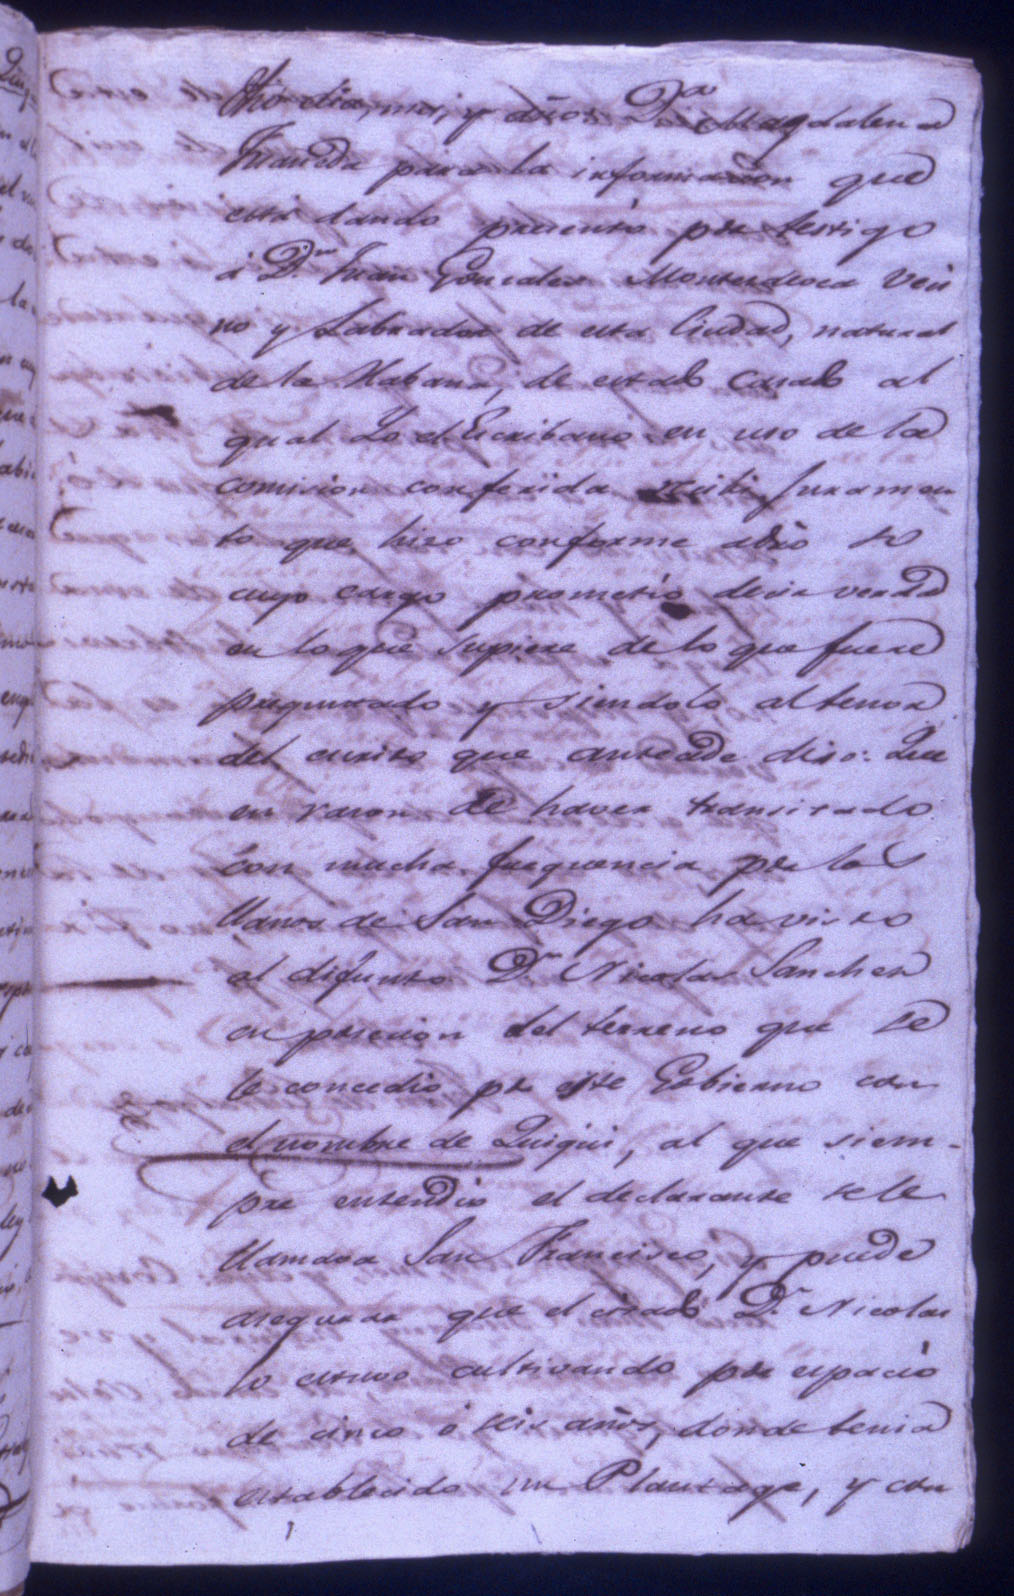 dho dia, mes, y años Dª Magdalena
Juaneda para la informacion que
está dando presentó por testigo
á Dn. Juan Gonzalez Montesdeoca Veci
no y Labrador de esta Ciudad, natural
de la Habana, de estado casado al
qual Yo el Escribano en uso de la
comision conferida recibi Juramen
to que hizo conforme a dro so
cuyo cargo prometió decir verdd
en lo que supiere de lo que fuere
preguntado y siendolo al tenor
del escrito que antecede dixo: Que
en razon de haver transitado
con mucha frequencia por los
llanos de San Diego ha visto
al difunto Dn. Nicolas Sanchez
en posecion del terreno que se
le concedio pr este Gobierno con
el nombre de Quiqui, al que siem-
pre entendio el declarante se le
llamava San Francisco, y puede
asegurar que el citado Dn. Nicolas
lo estuvo cultivando por espacio
de cinco ó seis años, donde tenia
establecido un Plantage, y con